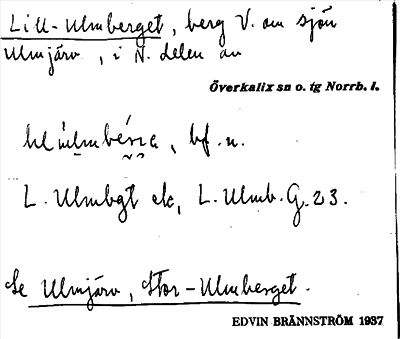 Lill-Ulmberget, berg V. om sjön
Ulmjärv, i N. delen av
Överkalix sn o. tg Norrb. l.
bf. n.
L. Ulmbgt ek, L. Ulmb. G. 23.
Se Ulmjärv, Stor-Ulmberget.
EDVIN BRÄNNSTRÖM 1937